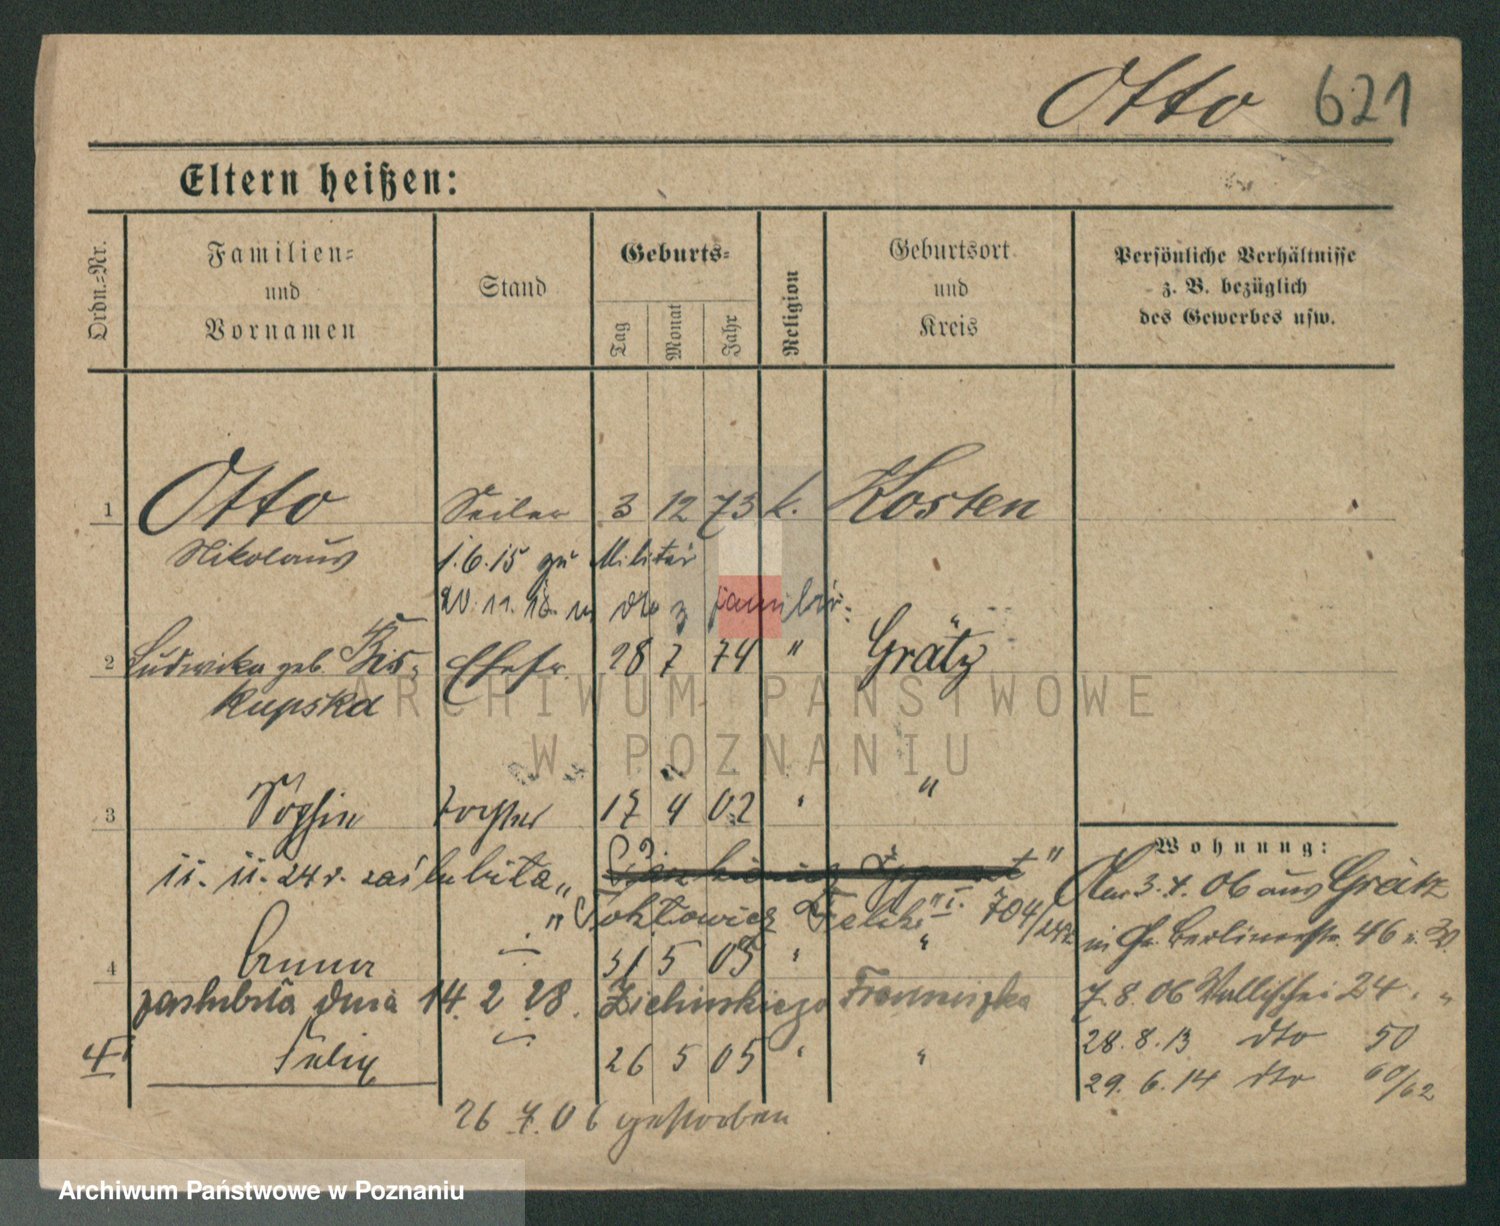 Otto 621
Eltern heißen:
Ordn.-Nr.
Familien-
und
Vornamen
Stand
Geburts-
Tag
Monat
Jahr
Religion
Geburtsort
und
Kreis
Persönliche Verhältnisse
z. B. bezüglich
des Gewerbes usw.
1 Otto Seiler 3 12 73 k. Kosten
Nikolaus 1.6.15 zu Militär
20. 11. 18.
2 Ludwika geb. Bis- Ehefr. 28 7 74 " Grätz
kupska
ARCHIWUM PAŃSTWOWE
W POZNANIU
3 Sophie Tochter 17 4 02 " "
Wohnung:
11. 11. 24 r. zaślubiła "
Am 3. 4. 06 aus Grätz
" Feliks 704/
in Gr. Berlinerstr. 46
4 Anna 31 5 03 " "
zaślubiła dnia 14. 2. 28. Zielinskiego Franciszka
7. 8. 06 Wallischei 24. "
28. 8. 13 dto 50
4 Felix 26 5 05 " "
29. 6. 14 dto 60/62
26 7. 06 gestorben
Archiwum Państwowe w Poznaniu